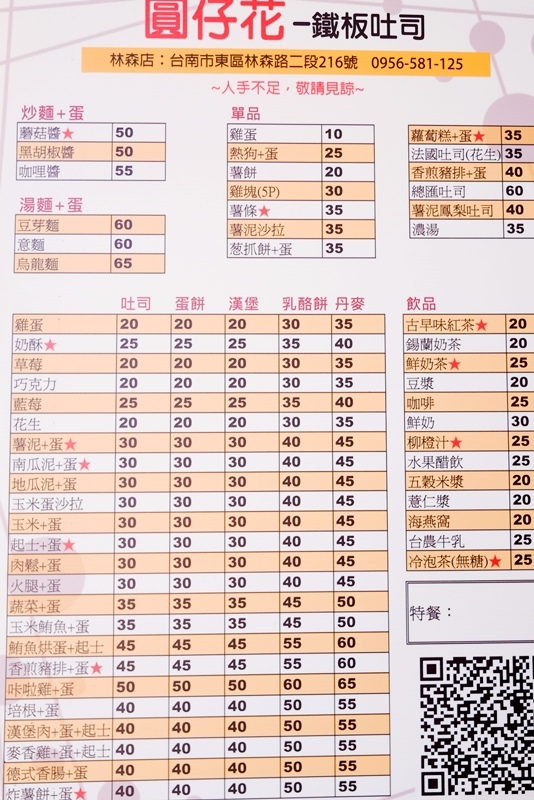 圓仔花-鐵板吐司
林森店：台南市東區林森路二段216號 0956-581-125
~人手不足，敬請見諒~
炒麵+蛋
蘑菇醬★ 50
黑胡椒醬 50
咖哩醬 55
湯麵+蛋
豆芽麵 60
意麵 60
烏龍麵 65
單品
雞蛋 10
熱狗+蛋 25
薯餅 20
雞塊(5P) 30
薯條★ 35
薯泥沙拉 35
葱抓餅+蛋 35
蘿蔔糕+蛋★ 35
法國吐司(花生) 35
香煎豬排+蛋 40
總匯吐司 60
薯泥鳳梨吐司 40
濃湯 35
吐司 蛋餅 漢堡 乳酪餅 丹麥
雞蛋 20 20 20 30 35
奶酥★ 25 25 25 35 40
草莓 20 20 20 30 35
巧克力 20 20 20 30 35
藍莓 25 25 25 35 40
花生 20 20 20 30 35
薯泥+蛋★ 30 30 30 40 45
南瓜泥+蛋★ 30 30 30 40 45
地瓜泥+蛋 30 30 30 40 45
玉米蛋沙拉 30 30 30 40 45
玉米+蛋 30 30 30 40 45
起士+蛋★ 30 30 30 40 45
肉鬆+蛋 30 30 30 40 45
火腿+蛋 30 30 30 40 45
蔬菜+蛋 35 35 35 45 50
玉米鮪魚+蛋 35 35 35 45 50
鮪魚烘蛋+起士 45 45 45 55 60
香煎豬排+蛋★ 45 45 45 55 60
咔啦雞+蛋 50 50 50 60 65
培根+蛋 40 40 40 50 55
漢堡肉+蛋+起士 40 40 40 50 55
麥香雞+蛋+起士 40 40 40 50 55
德式香腸+蛋 40 40 40 50 55
炸薯餅+蛋★ 40 40 40 50 55
飲品
古早味紅茶★ 20
錫蘭奶茶 20
鮮奶茶★ 25
豆漿 20
咖啡 25
鮮奶 30
柳橙汁★ 25
水果醋飲 25
五穀米漿 20
薏仁漿 20
海燕窩 20
台農牛乳 25
冷泡茶(無糖)★ 25
特餐：